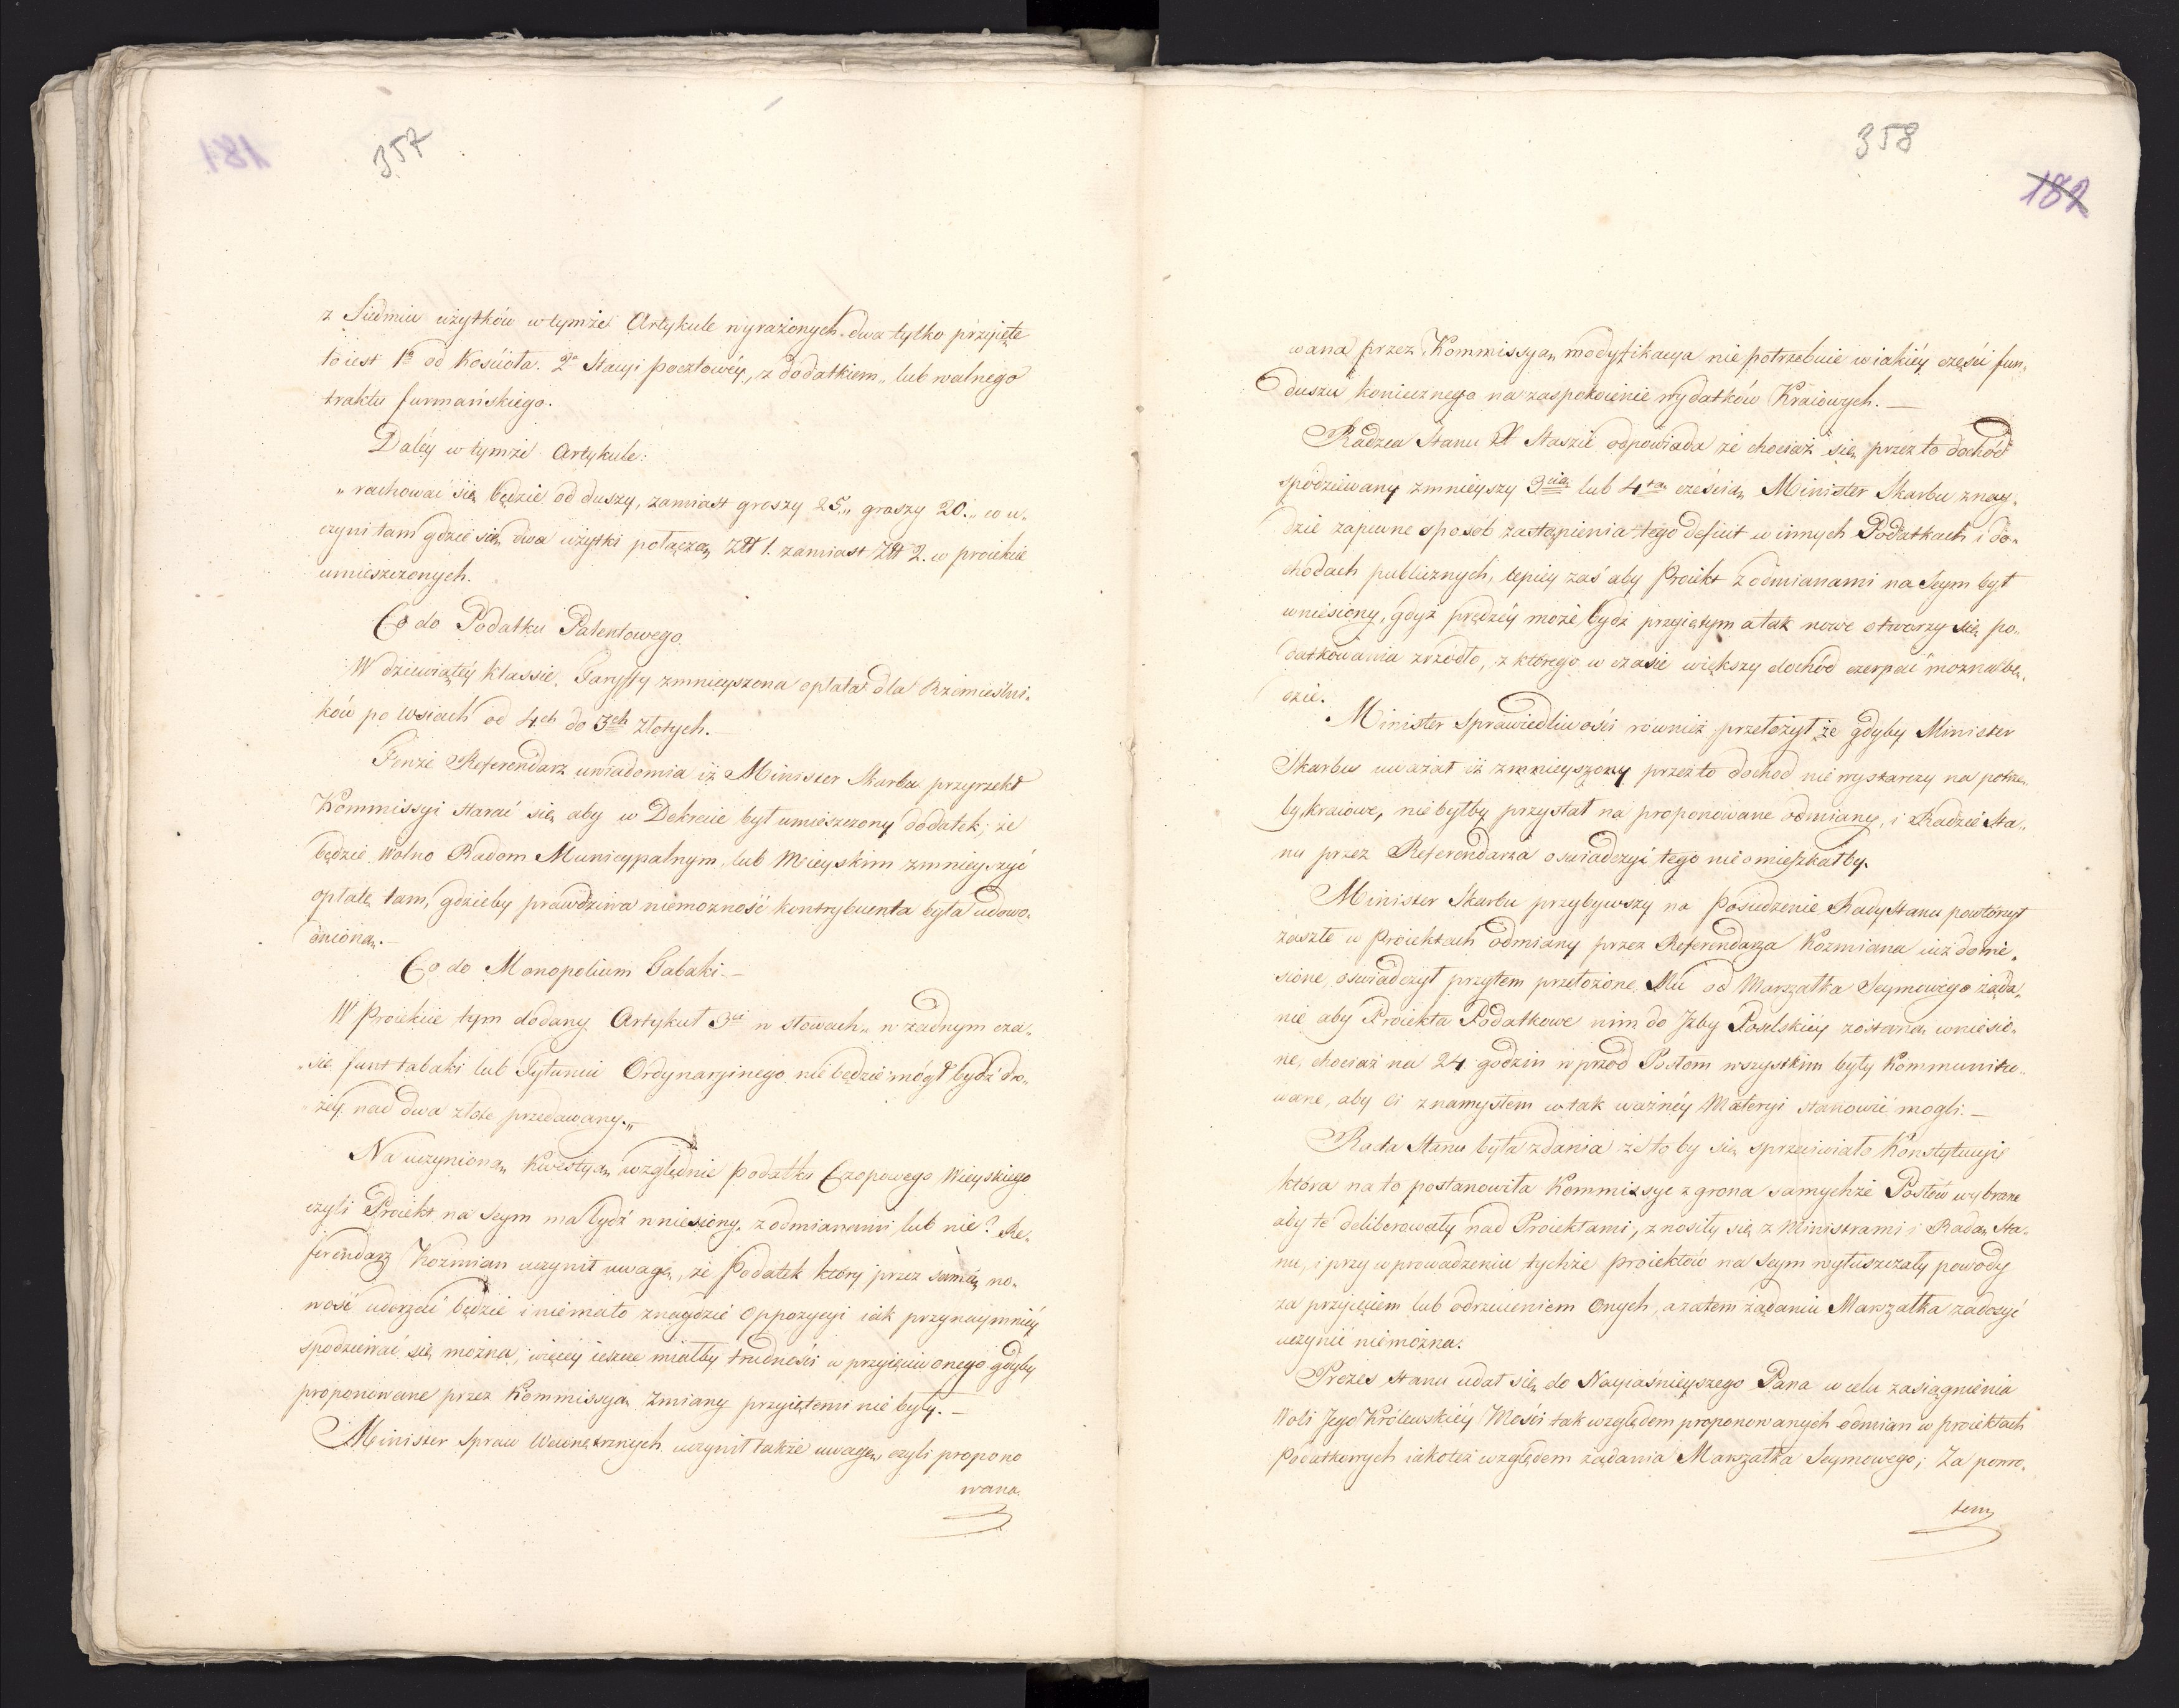 357
z Siedmiu użytków w tymże Artykule wyrażonych dwa tylko przyjęte
to iest 1º od Kościoła. 2º Stacyi pocztowéy, z dodatkiem „ lub walnego
traktu furmańskiego.
Daléy w tymże Artykule:
„ rachować się będzie od duszy, zamiast groszy 25 „ groszy 20. „ co u„
czyni tam gdzie się dwa użytki połączą Złt 1. zamiast Złt 2. w proiekcie
umieszczonych.
Co do Podatku Patentowego
W dziewiątéy klassie Taryffy zmnieyszona opłata dla Rzemieślni„
ków po wsiach od 4ch do 3ch Złotych. —
Tenże Referendarz uwiadomia iż Minister Skarbu przyrzekł
Kommissyi starać się aby w Dekrecie był umieszczony dodatek; że
będzie wolno Radom Municypalnym, lub Mieyskim zmnieyszyć
opłatę tam, gdzieby prawdziwa niemożność kontrybuenta była udowo„
dnioną. —
Co do Monopolium Tabaki. —
W Proiekcie tym dodany Artykuł 3ci w słowach „ w żadnym cza„
„ sie funt tabaki lub Tytuniu Ordynaryinego nie będzie mógł bydź dro„
„ żéy nad dwa złote przedawany. „
Na uczynioną kwestyą względnie podatku Czopowego Wieyskiego
czyli Proiekt na Seym ma bydź wniesiony z odmianami lub nie? Re„
ferendarz Kozmian uczynił uwagę, że podatek który przez samą no„
wość uderzać będzie i niemało znaydzie Oppozycyi iak przynaymniéy
spodziewać się można, więcéy ieszcze miałby trudności w przyięciu onego gdyby
proponowane przez Kommissyą zmiany przyiętemi nie były. —
Minister Spraw Wewnętrznych uczynił także uwagę czyli propono
wana
358
182
wana przez Kommissyą modyfikacya nie potrzebuie w iakiéy części fun„
duszu koniecznego na zaspokoienie wydatków Kraiowych. —
Radzca Stanu X Staszic odpowiada że chociaż się przez to dochód
spodziewany zmnieyszy 3cią lub 4tą częścią, Minister Skarbu znay„
dzie zapewne sposób zastąpienia tego deficit w innych Podatkach i do„
chodach publicznych, lepiéy zaś aby Proiekt z odmianami na Seym był
wniesiony, gdyż prędzéy może bydź przyiętym a tak nowe otworzy się po„
datkowania zrzodło, z którego w czasie większy dochód czerpać można bę„
dzie.
Minister Sprawiedliwości również przełożył że gdyby Minister
Skarbu uważał iż zmnieyszony przez to dochod nie wystarczy na potrze„
by kraiowe, nie byłby przystał na proponowane odmiany, i Radzie Sta„
nu przez Referendarza oświadczyć tego nie omieszkałby.
Minister Skarbu przybywszy na Posiedzenie Rady Stanu powtórzył
zaszłe w Proiektach odmiany przez Referendarza Kozmiana iuż donie„
sione, oświadczył przytem przełożone Mu od Marszałka Seymowego żąda„
nie aby Proiekta Podatkowe nim do Izby Poselskiéy zostaną wniesio„
ne, chociaż na 24 godzin wprzód Posłom wszystkim były kommuniko„
wane, aby ci z namysłem w tak ważnéy Materyi stanowić mogli. —
Rada Stanu była zdania że to by się sprzeciwiało Konstytucyi
która na to postanowiła Kommissye z grona samychże Posłów wybrane
aby te deliberowały nad Proiektami, znosiły się z Ministrami i Radą Sta„
nu, i przy wprowadzeniu tychże proiektów na Seym wyłuszczały powody
za przyięciem lub odrzuceniem Onych, a zatem żądaniu Marszałka zadosyć
uczynić niemożna.
Prezes Stanu udał się do Nayiaśnieyszego Pana w celu zasiągnienia
Woli Jego Królewskiéy Mości tak względem proponowanych odmian w proiektach
Podatkowych iakoteż względem żądania Marszałka Seymowego; Za powro„
tem